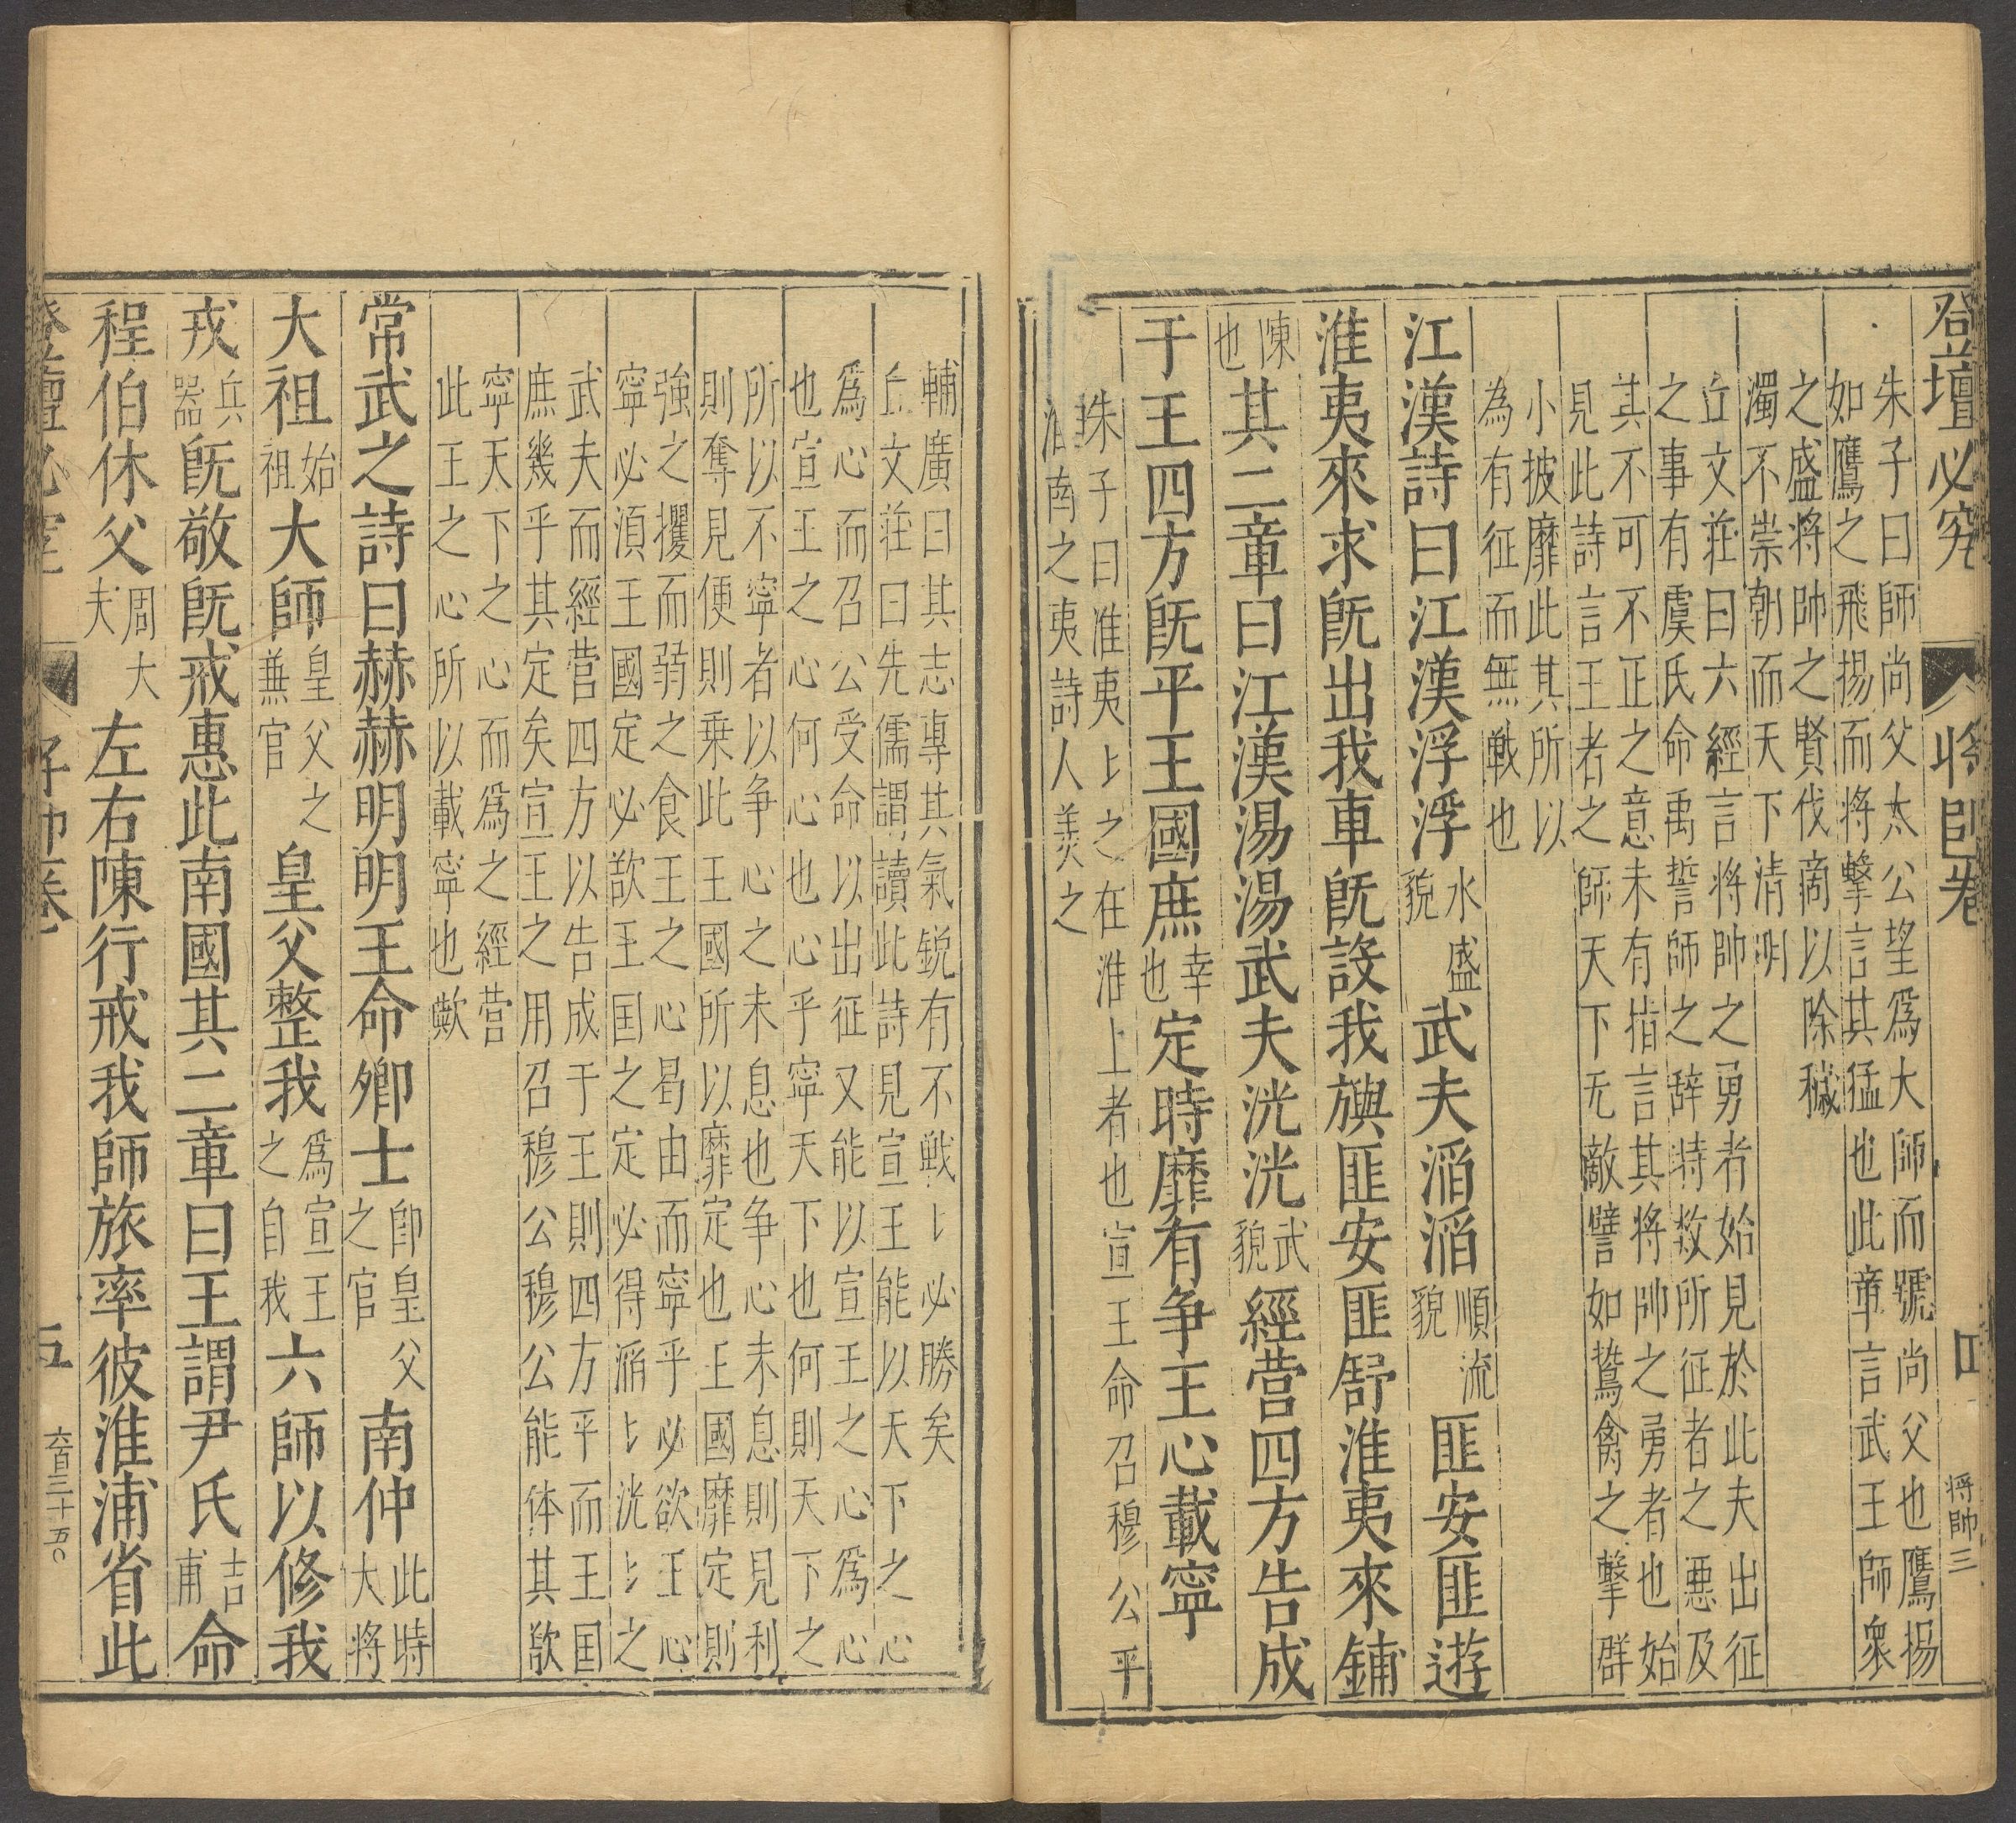 登壇必究
將帥卷
四
將帥三
朱子曰師尚父太公望爲大師而號尚父也鷹揚
如鷹之飛揚而將擊言其猛也此章言武王師衆
之盛將帥之賢伐商以除穢
濁不崇朝而天下清明
丘文莊曰六經言將帥之勇者始見於此夫出征
之事有虞氏命禹誓師之辞特数所征者之悪及
其不可不正之意未有指言其將帥之勇者也始
見此詩言王者之師天下无敵譬如鷙禽之擊群
小披靡此其所以
為有征而無戦也
江漢詩曰江漢浮浮水盛
貌武夫滔滔順流
貌匪安匪遊
淮夷來求既出我車既設我旟匪安匪舒淮夷來鋪
陳
也其二章曰江漢湯湯武夫洸洸武
貌經营四方告成
于王四方既平王國庶幸
也定時靡有争王心載寧
朱子曰淮夷〻之在淮上者也宣王命召穆公平
淮南之夷詩人美之
輔廣曰其志専其氣銳有不戦〻必勝矣
丘文莊曰先儒謂讀此詩見宣王能以天下之心
爲心而召公受命以出征又能以宣王之心爲心
也宣王之心何心也心乎寧天下也何則天下之
所以不寧者以争心之未息也争心未息則見利
則奪見便則乗此王國所以靡定也王國靡定則
強之攫而弱之食王之心曷由而寧乎必欲王心
寧必湏王國定必欲王囯之定必得滔〻洸〻之
武夫而經营四方以告成于王則四方平而王囯
庶幾乎其定矣宣王之用召穆公穆公能体其欲
寧天下之心而爲之經营
此王之心所以載寧也歟
常武之詩曰赫赫明明王命卿士即皇父
之官南仲此時
大將
大祖始
祖大師皇父之
兼官皇父整我爲宣王
之自我六師以修我
戎兵
器既敬既戒惠此南國其二章曰王謂尹氏吉
甫命
程伯休父周大
夫左右陳行戒我師旅率彼淮浦省此
五
六百三十五〇